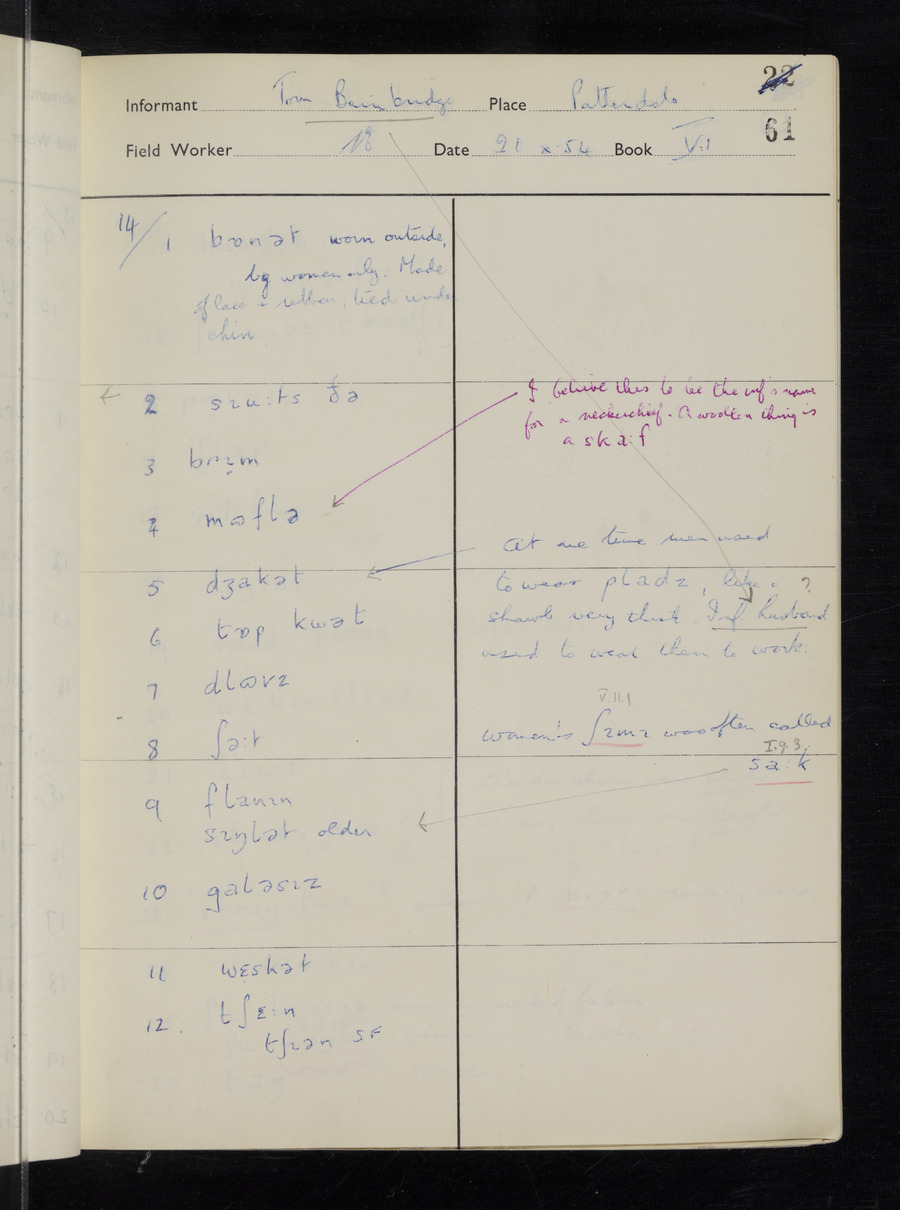 22
Informant Tom Bainbridge Place Patterdale
61
Field Worker Date 21 x 54 Book VI
14/ 1 bɒnət worn outside,
by women only. Made
of lace + ribbon, tied under
chin
2 sɪu:ts ðə
3 brɪm
4 mʊflə
I believe this to be the inf's name
for a neckerchief. A woollen thing is
a ska:f
5 dʒakət
At one time men used
to wear pladz, like a ?
shawl very thick. Inf. husband
used to wear them to work.
6 tɒp kwət
7 dlʊvz
8 ʃə:t
V.11.1
women's ʃɪmɪ was often called
I.9.3
sa:k
9 flanɪn
sɪŋlət older
10 galəsɪz
11 wɛskət
12. tʃɛ:n
tʃɪən SF